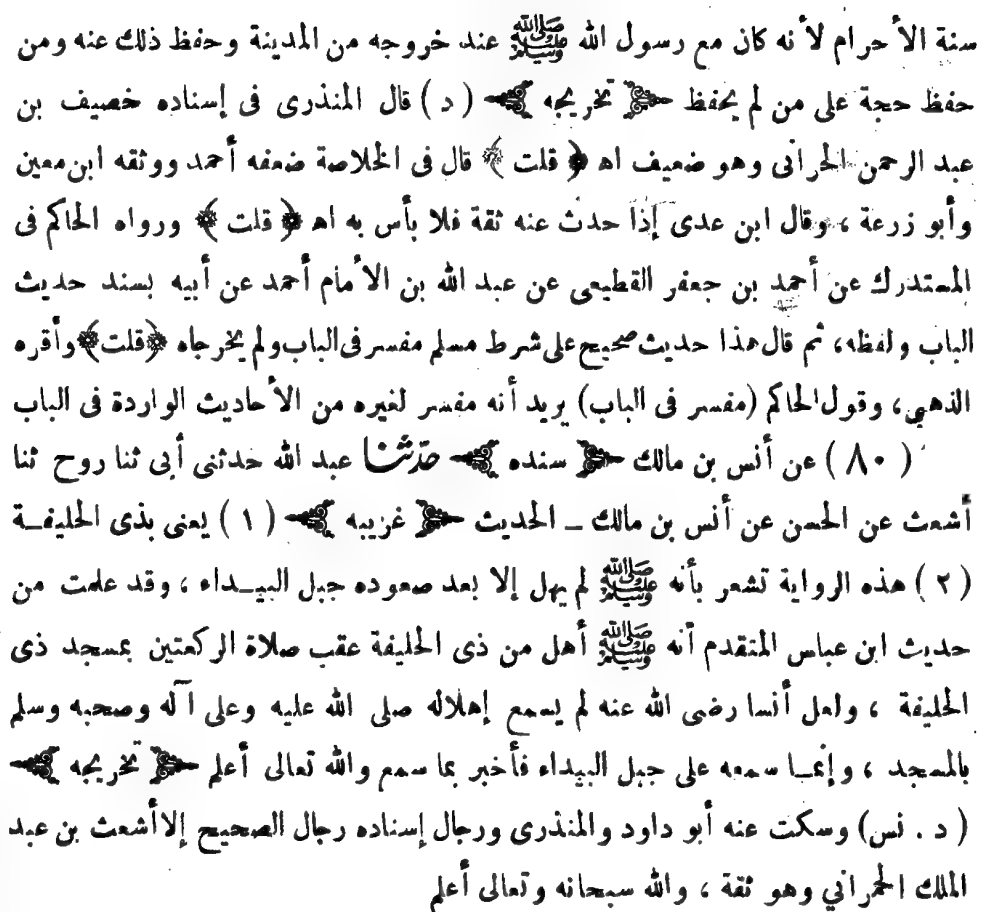 سنة الأحرام لأنه كان مع رسول الله ﷺ عند خروجه من المدينة وحفظ ذلك عنه ومن
حفظ حجة على من لم يحفظ ﴿ تخريجه ﴾ ( د ) قال المنذرى فى إسناده خصيف بن
عبد الرحمن الحرانى وهو ضعيف اه ﴿ قلت ﴾ قال فى الخلاصة ضعفه أحمد ووثقه ابن معين
وأبو زرعة ، وقال ابن عدى إذا حدث عنه ثقة فلا بأس به اه ﴿ قلت ﴾ ورواه الحاكم فى
المستدرك عن أحمد بن جعفر القطيعى عن عبد الله بن الأمام أحمد عن أبيه بسند حديث
الباب ولفظه، ثم قال هذا حديث صحيح على شرط مسلم مفسر فى الباب ولم يخرجاه ﴿قلت﴾ وأقره
الذهبي، وقول الحاكم (مفسر فى الباب) يريد أنه مفسر لغيره من الأحاديث الواردة فى الباب
( ٨٠ ) عن أنس بن مالك ﴿ سنده ﴾ حدّثنا عبد الله حدثنى أبى ثنا روح ثنا
أشعث عن الحسن عن أنس بن مالك ــ الحديث ﴿ غريبه ﴾ ( ١ ) يعنى بذى الحليفــة
( ٢ ) هذه الرواية تشعر بأنه ﷺ لم يهل إلا بعد صعوده جبل البيــداء ، وقد علمت من
حديث ابن عباس المتقدم أنه ﷺ أهل من ذى الحليفة عقب صلاة الركعتين بمسجد ذى
الحليفة ، ولعل أنسا رضى الله عنه لم يسمع إهلاله صلى الله عليه وعلى آله وصحبه وسلم
بالمسجد ، وإنمــا سمعه على جبل البيداء فأخبر بما سمع والله تعالى أعلم ﴿ تخريجه ﴾
( د . نس) وسكت عنه أبو داود والمنذرى ورجال إسناده رجال الصحيح إلا أشعث بن عبد
الملك الحمراني وهو ثقة ، والله سبحانه وتعالى أعلم